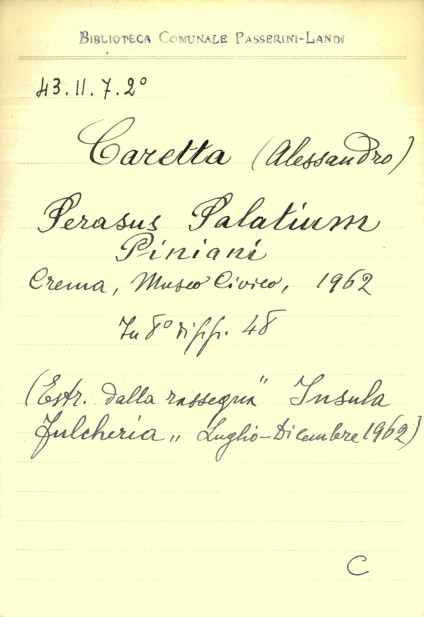 BIBLIOTECA COMUNALE PASSERINI-LANDI
43.II.7.2º
Caretta (Alessandro)
Perasus Palatium
Piniani
Crema, Museo Civico, 1962
In 8º di pp. 48
(Estr. dalla rassegna " Insula
Fulcheria „ Luglio-Dicembre 1962)
C